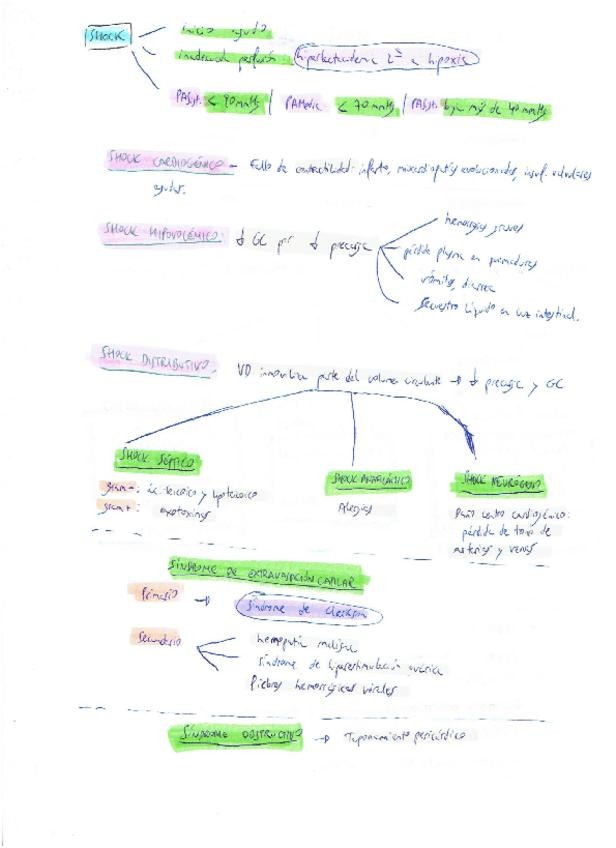 SHOCK
inicio agudo
inadecuada perfusión: hiperlactacidemia 2ª a hipoxia
PASyst. < 90 mmHg | PAMedia < 70 mmHg | PASyst. baja más de 40 mmHg
SHOCK CARDIOGÉNICO - Fallo de contractilidad: infarto, miocardiopatías evolucionadas, insuf. valvulares
agudas.
SHOCK HIPOVOLÉMICO: ↓ GC por ↓ precarga
hemorragias graves
pérdida plasma en quemaduras
vómitos, diarrea
Secuestro líquido en luz intestinal.
SHOCK DISTRIBUTIVO. VD inmoviliza parte del volumen circulante → ↓ precarga y GC
SHOCK SÉPTICO
gram-: ác. teicoico y lipoteicoico
gram+: exotoxinas
SHOCK ANAFILÁCTICO
Alergias
SHOCK NEURÓGENO
Daño centro cardiogénico:
pérdida de tono de
arterias y venas
SÍNDROME DE EXTRAVASACIÓN CAPILAR
Primario → Síndrome de Clarkson
Secundario
hemopatía maligna
síndrome de hiperestimulación ovárica
Fiebres hemorrágicas virales
SÍNDROME OBSTRUCTIVO → Taponamiento pericárdico